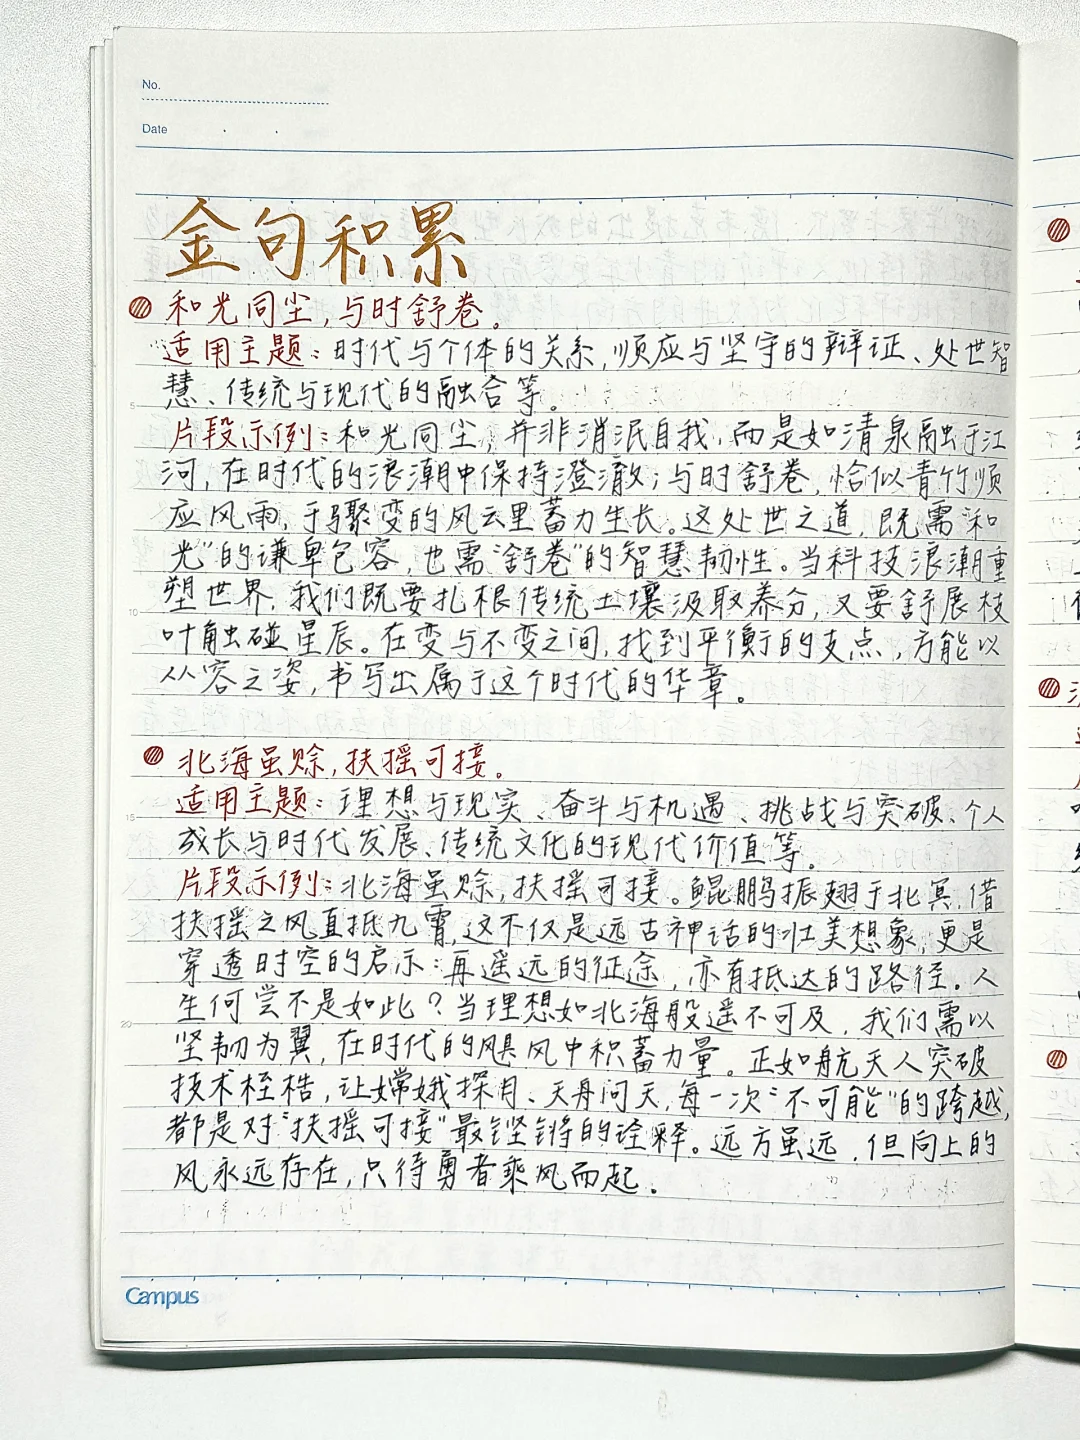 No.
Date
金句积累
和光同尘,与时舒卷。
适用主题:时代与个体的关系,顺应与坚守的辩证、处世智
慧、传统与现代的融合等。
片段示例:和光同尘,并非消泯自我,而是如清泉融于江
河,在时代的浪潮中保持澄澈;与时舒卷,恰似青竹顺
应风雨,于骤变的风云里蓄力生长。这处世之道,既需“和
光”的谦卑包容,也需“舒卷”的智慧韧性。当科技浪潮重
塑世界,我们既要扎根传统土壤汲取养分,又要舒展枝
叶触碰星辰。在变与不变之间,找到平衡的支点,方能以
从容之姿,书写出属于这个时代的华章。
北海虽赊,扶摇可接。
适用主题:理想与现实、奋斗与机遇、挑战与突破、个人
成长与时代发展、传统文化的现代价值等。
片段示例:北海虽赊,扶摇可接。鲲鹏振翅于北冥,借
扶摇之风直抵九霄,这不仅是远古神话的壮美想象,更是
穿透时空的启示:再遥远的征途,亦有抵达的路径。人
生何尝不是如此?当理想如北海般遥不可及,我们需以
坚韧为翼,在时代的飓风中积蓄力量。正如航天人突破
技术桎梏,让嫦娥探月、天舟问天,每一次“不可能”的跨越,
都是对“扶摇可接”最铿锵的诠释。远方虽远,但向上的
风永远存在,只待勇者乘风而起。
Campus